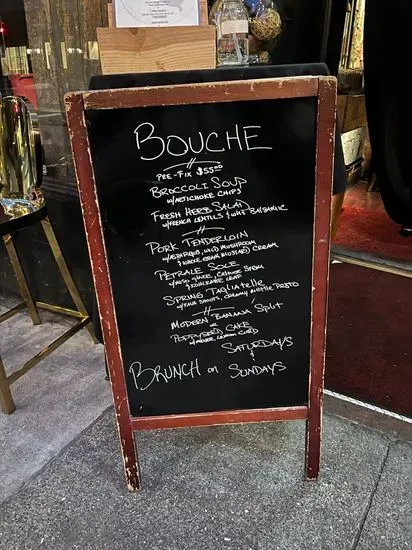 BOUCHE
PRE-FIX $55.00
BROCCOLI SOUP
W/ARTICHOKE CHIPS
FRESH HERB SALAD
W/FRENCH LENTILS & WHT BALSAMIC
PORK TENDERLOIN
W/ASPARAGUS, WILD MUSHROOM
& WHOLE GRAIN MUSTARD CREAM
PETRALE SOLE
W/
SPRING TAGLIATELLE
W/ CREAMY PESTO
MODERN "BANANA" SPLIT
OR
POPPYSEED CAKE
W/MEYER LEMON CURD
SATURDAYS
&
BRUNCH ON SUNDAYS